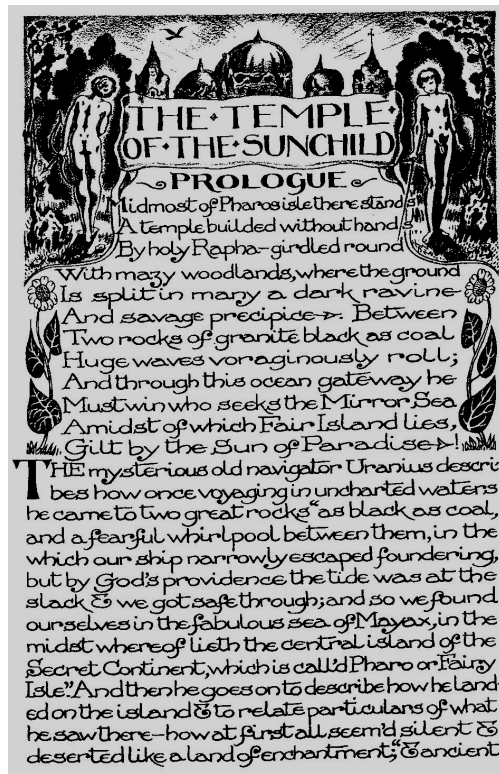 THE·TEMPLE·
OF·THE·SUNCHILD
PROLOGUE
Midmost of Pharos isle there stands
A temple builded without hands
By holy Rapha-girdled round
With mazy woodlands, where the ground
Is split in many a dark ravine
And savage precipice. Between
Two rocks of granite black as coal
Huge waves voraginously roll;
And through this ocean gateway he
Must win who seeks the Mirror Sea
Amidst of which Fair Island lies,
Gilt by the Sun of Paradise!
THE mysterious old navigator Uranius descri-
bes how once voyaging in uncharted waters
he came to two great rocks "as black as coal,
and a fearful whirlpool between them, in the
which our ship narrowly escaped foundering,
but by God's providence the tide was at the
slack & we got safe through; and so we found
ourselves in the fabulous sea of Mayax, in the
midst whereof lieth the central island of the
Secret Continent, which is call'd Pharo or Fairy
Isle". And then he goes on to describe how he land-
ed on the island & to relate particulars of what
he saw there-how at first all seem'd silent &
deserted like a land of enchantment; "& ancient